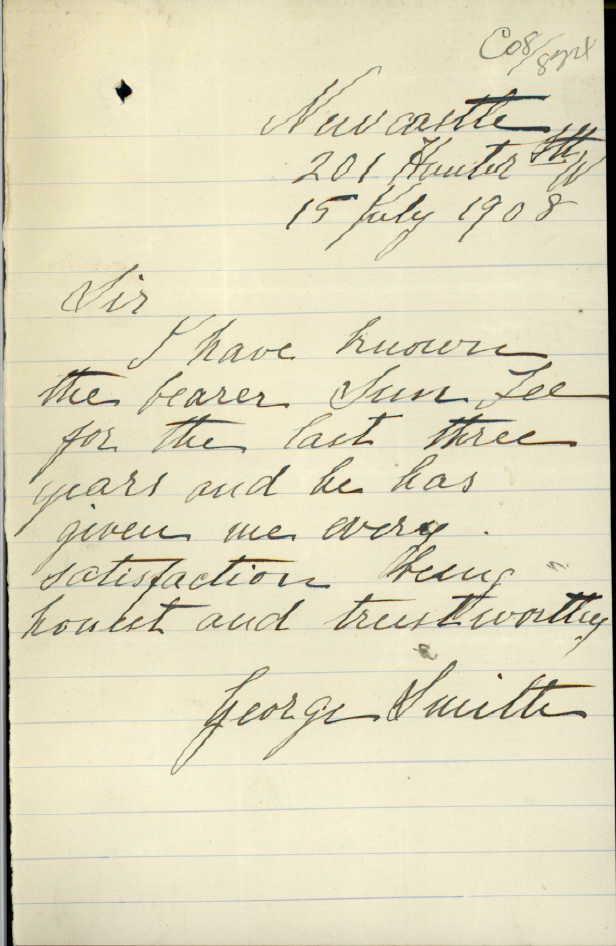 C08/8924
Newcastle
201 Hunter St W
15 July 1908
Sir
I have known
the bearer Sun Lee
for the last three
years and he has
given me every
satisfaction being
honest and trustworthy
George Smith